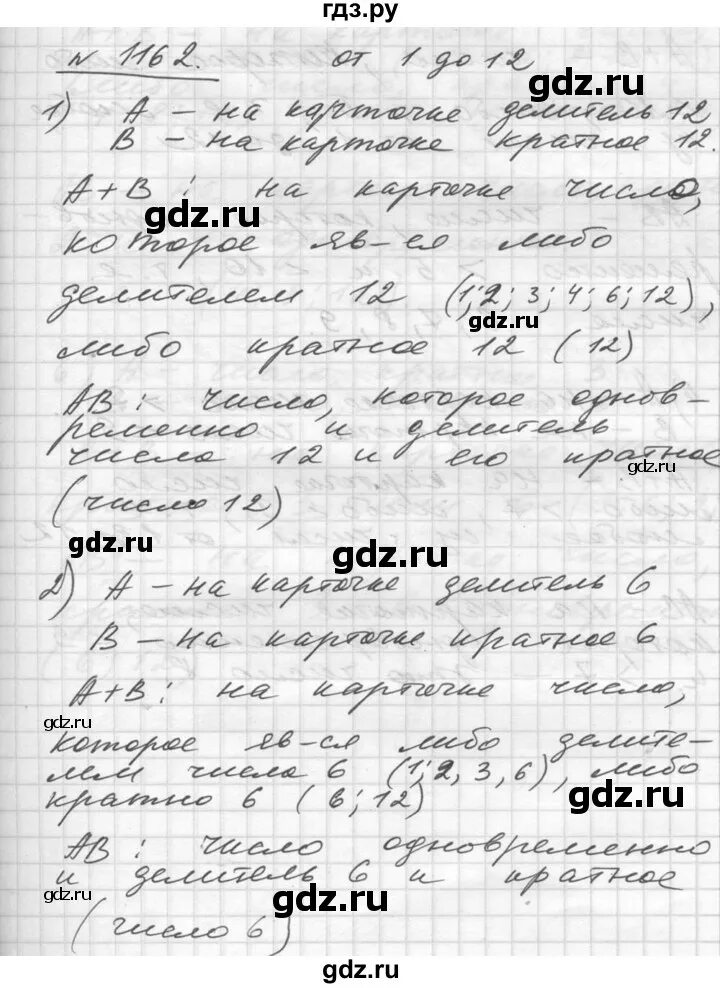 гдз.ру
№ 1162. от 1 до 12
gdz.ru
1) А – на карточке делитель 12
В – на карточке кратное 12.
gdz.ru
А+В : на карточке число,
gdz.ru
которое яв-ся либо
делителем 12 (1; 2; 3; 4; 6; 12),
gdz.ru
либо кратное 12 (12)
АВ : число, которое однов-
ременно и делитель
числа 12 и его кратное
gdz.ru
(число 12)
gdz.ru
gdz.ru
2) А – на карточке делитель 6
В – на карточке кратное 6
А+В : на карточке число,
gdz.ru
которое яв-ся либо делите-
лем числа 6 (1; 2, 3, 6), либо
кратно 6 (6; 12)
gdz.ru
АВ : число одновременно
и делитель 6 и кратное
gdz.ru
(число 6)
gdz.ru
gdz.ru